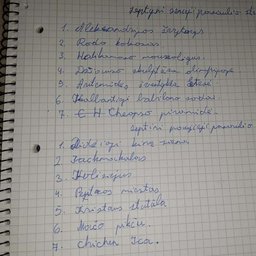 Septyni senieji pasaulio ste
1. Aleksandrijos švyturys
2. Rodo kolosas
3. Halikarnaso mauzoliejus.
4. Dzeuso skulptūra Olimpijoje
5. Artemidės šventykla
6. Babilono sodai
7. Cheopso piramidė.
Septyni naujieji pasaulio
1. Didžioji kinų siena
2. Tadžmahalas
3. Koliziejus
4. Petros miestas
5. Kristaus statula
6. Maču pikču.
7. Chichen Ica.